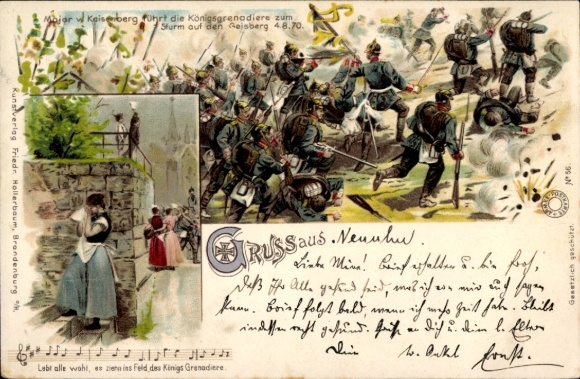 Major v. Kaisenberg führt die Königsgrenadiere zum
Sturm auf den Geisberg 4.8.70.
Kunstverlag Friedr. Hollerbaum, Brandenburg a/H.
No 56.
Gesetzlich geschützt.
GRUSS aus
Liebe Mine! Brief erhalten u. bin froh,
daß ihr Alle gesund seid, was ich von mir auch sagen
kann. Brief folgt bald, wenn ich mehr Zeit habe. Bleibt
indessen recht gesund. Grüße an dich u. die l. Eltern
Dein Onkel Ernst.
Lebt alle wohl, es ziehn ins Feld, des Königs Grenadiere.